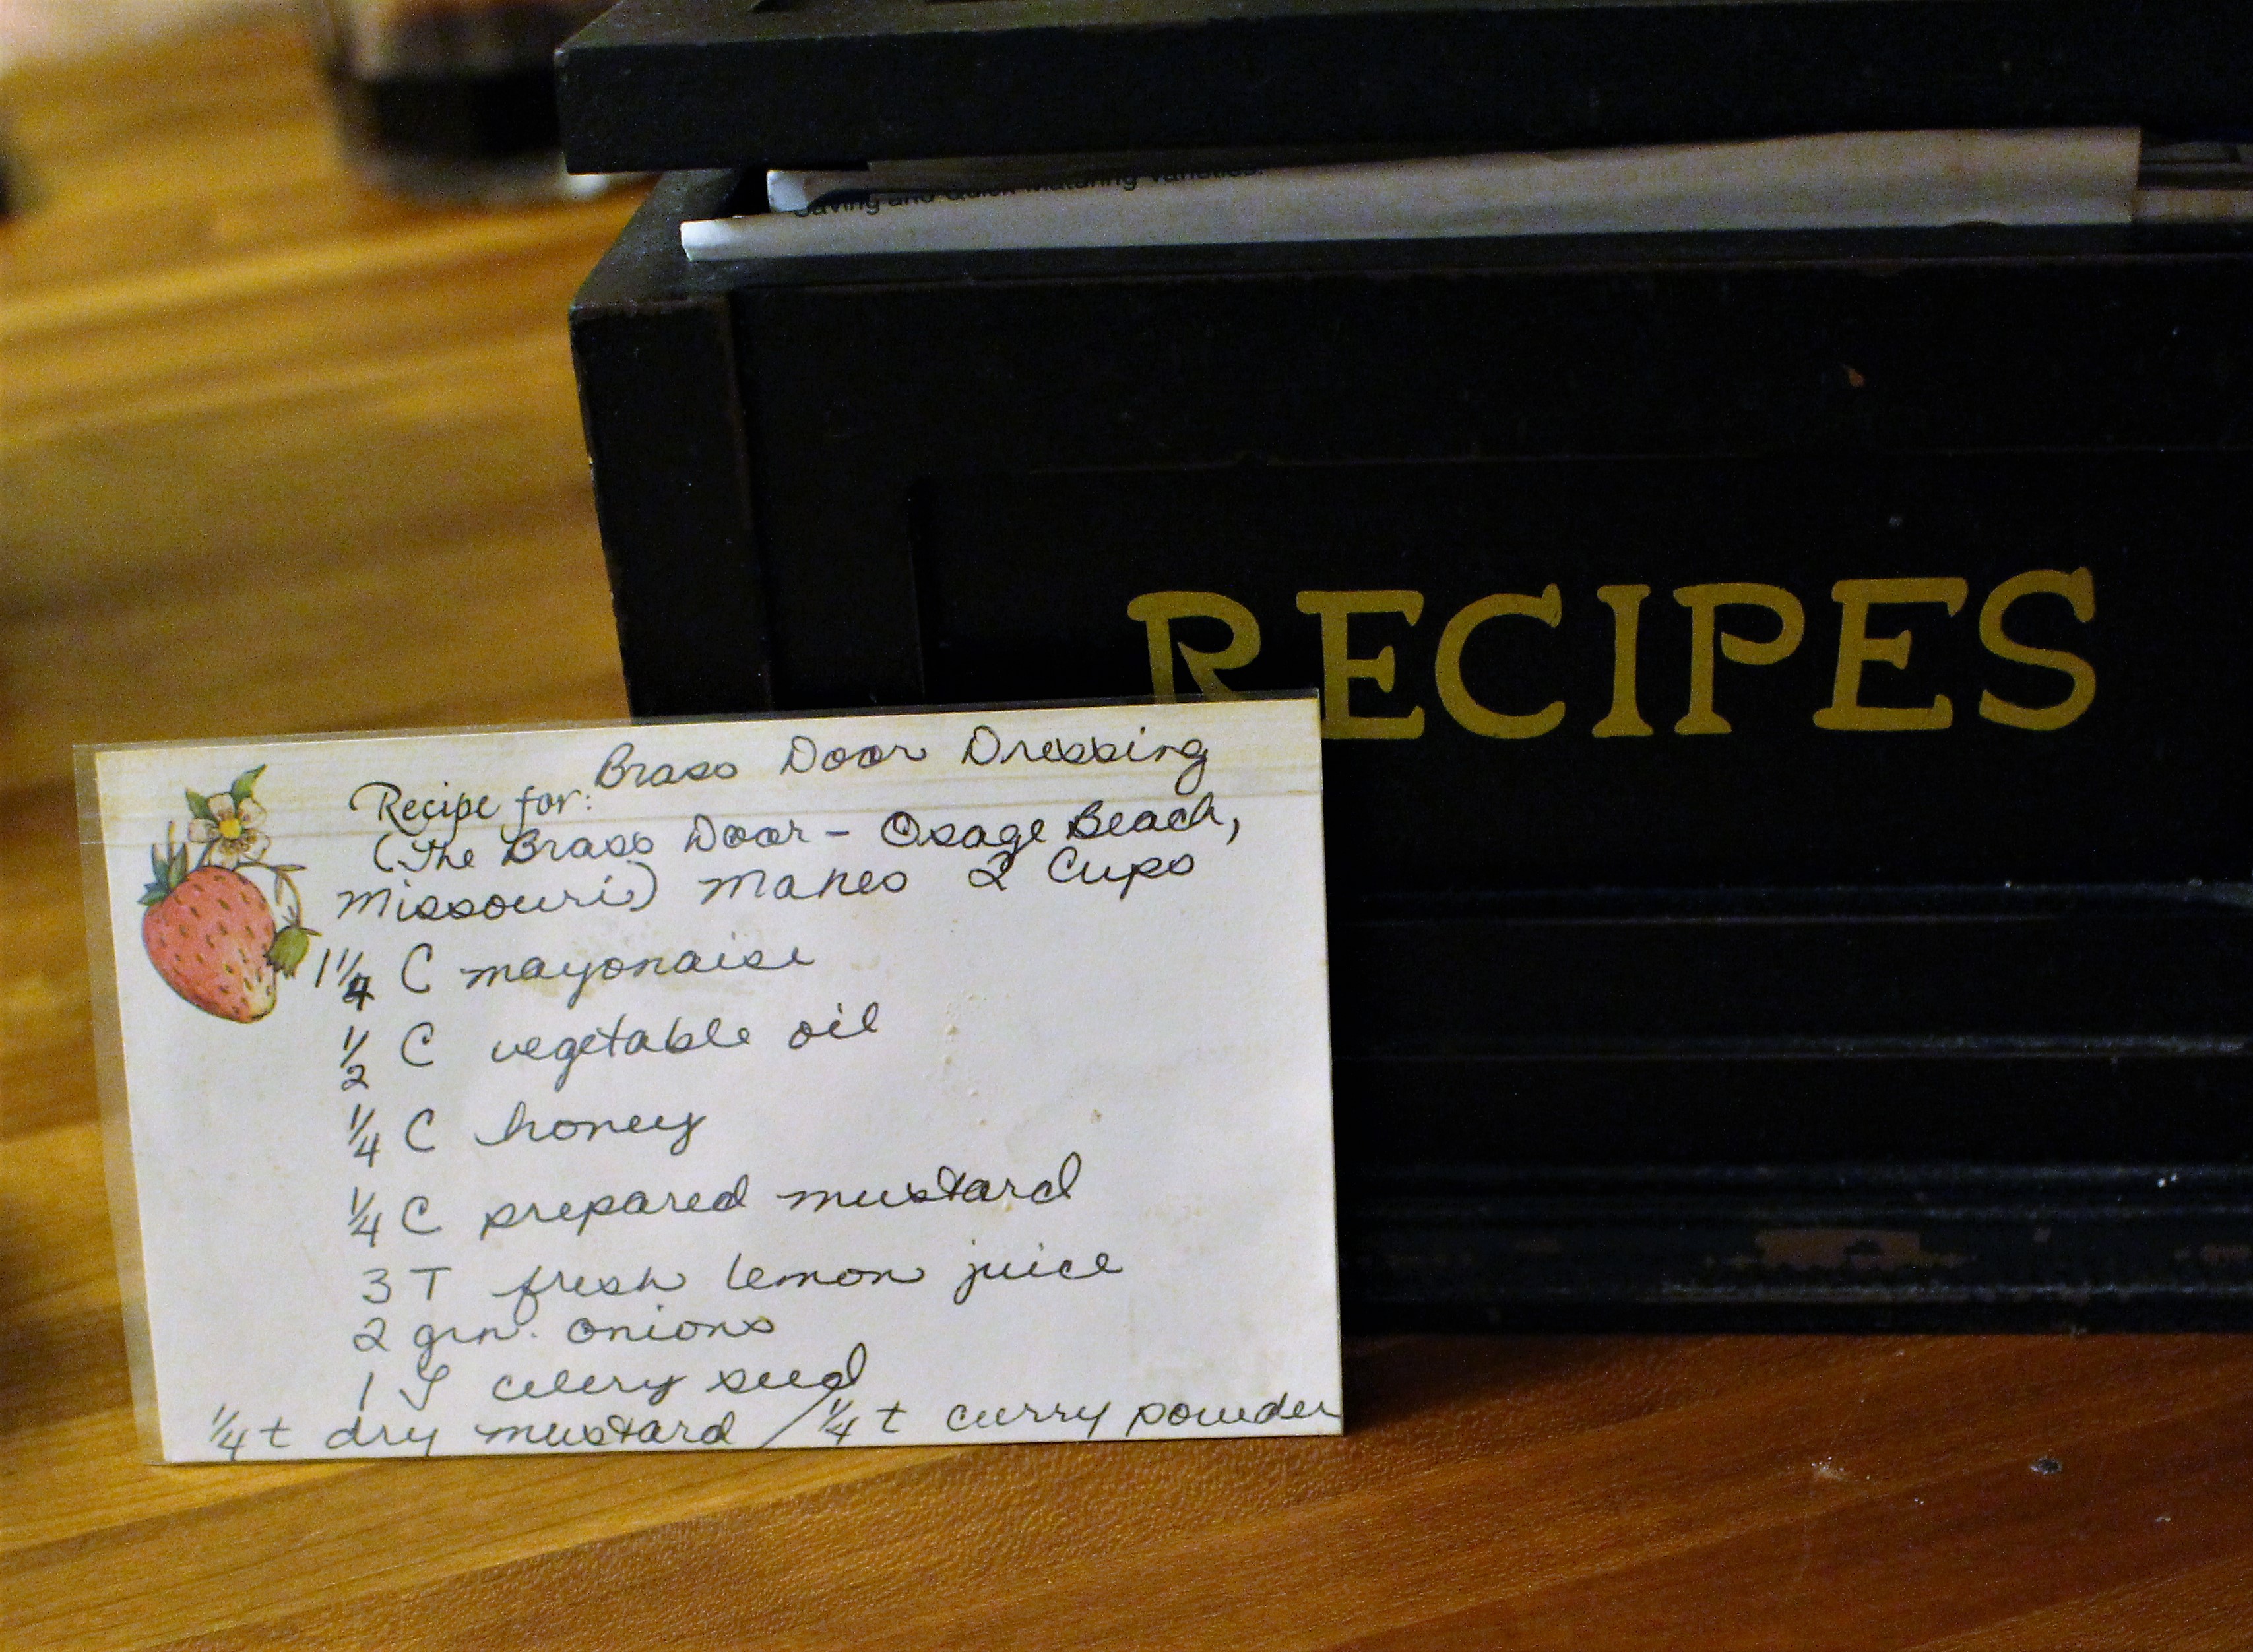 Saving and Quick Maturing Varieties.
RECIPES
Brass Door Dressing
Recipe for:
(The Brass Door - Osage Beach,
Missouri) Makes 2 Cups
1 1/4 C mayonaise
1/2 C vegetable oil
1/4 C honey
1/4 C prepared mustard
3 T fresh lemon juice
2 grn. onions
1 T celery seed
1/4 t dry mustard / 1/4 t curry powder